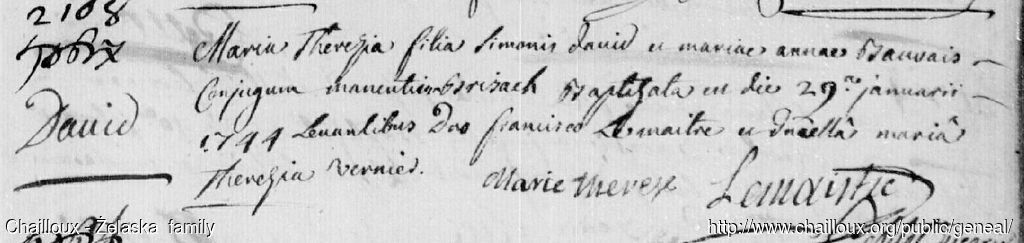 2108
David
Maria Theresia filia Simonis David et mariae annae Bauvais
Conjugum manentium Brisach Baptizata est die 29.na januarii
1744 Levantibus Dno francisco Lemaitre et Dnellâ mariâ
Theresia vernier. Marie therese Lemaistre
Chailloux - Żelaska family
http://www.chailloux.org/public/geneal/